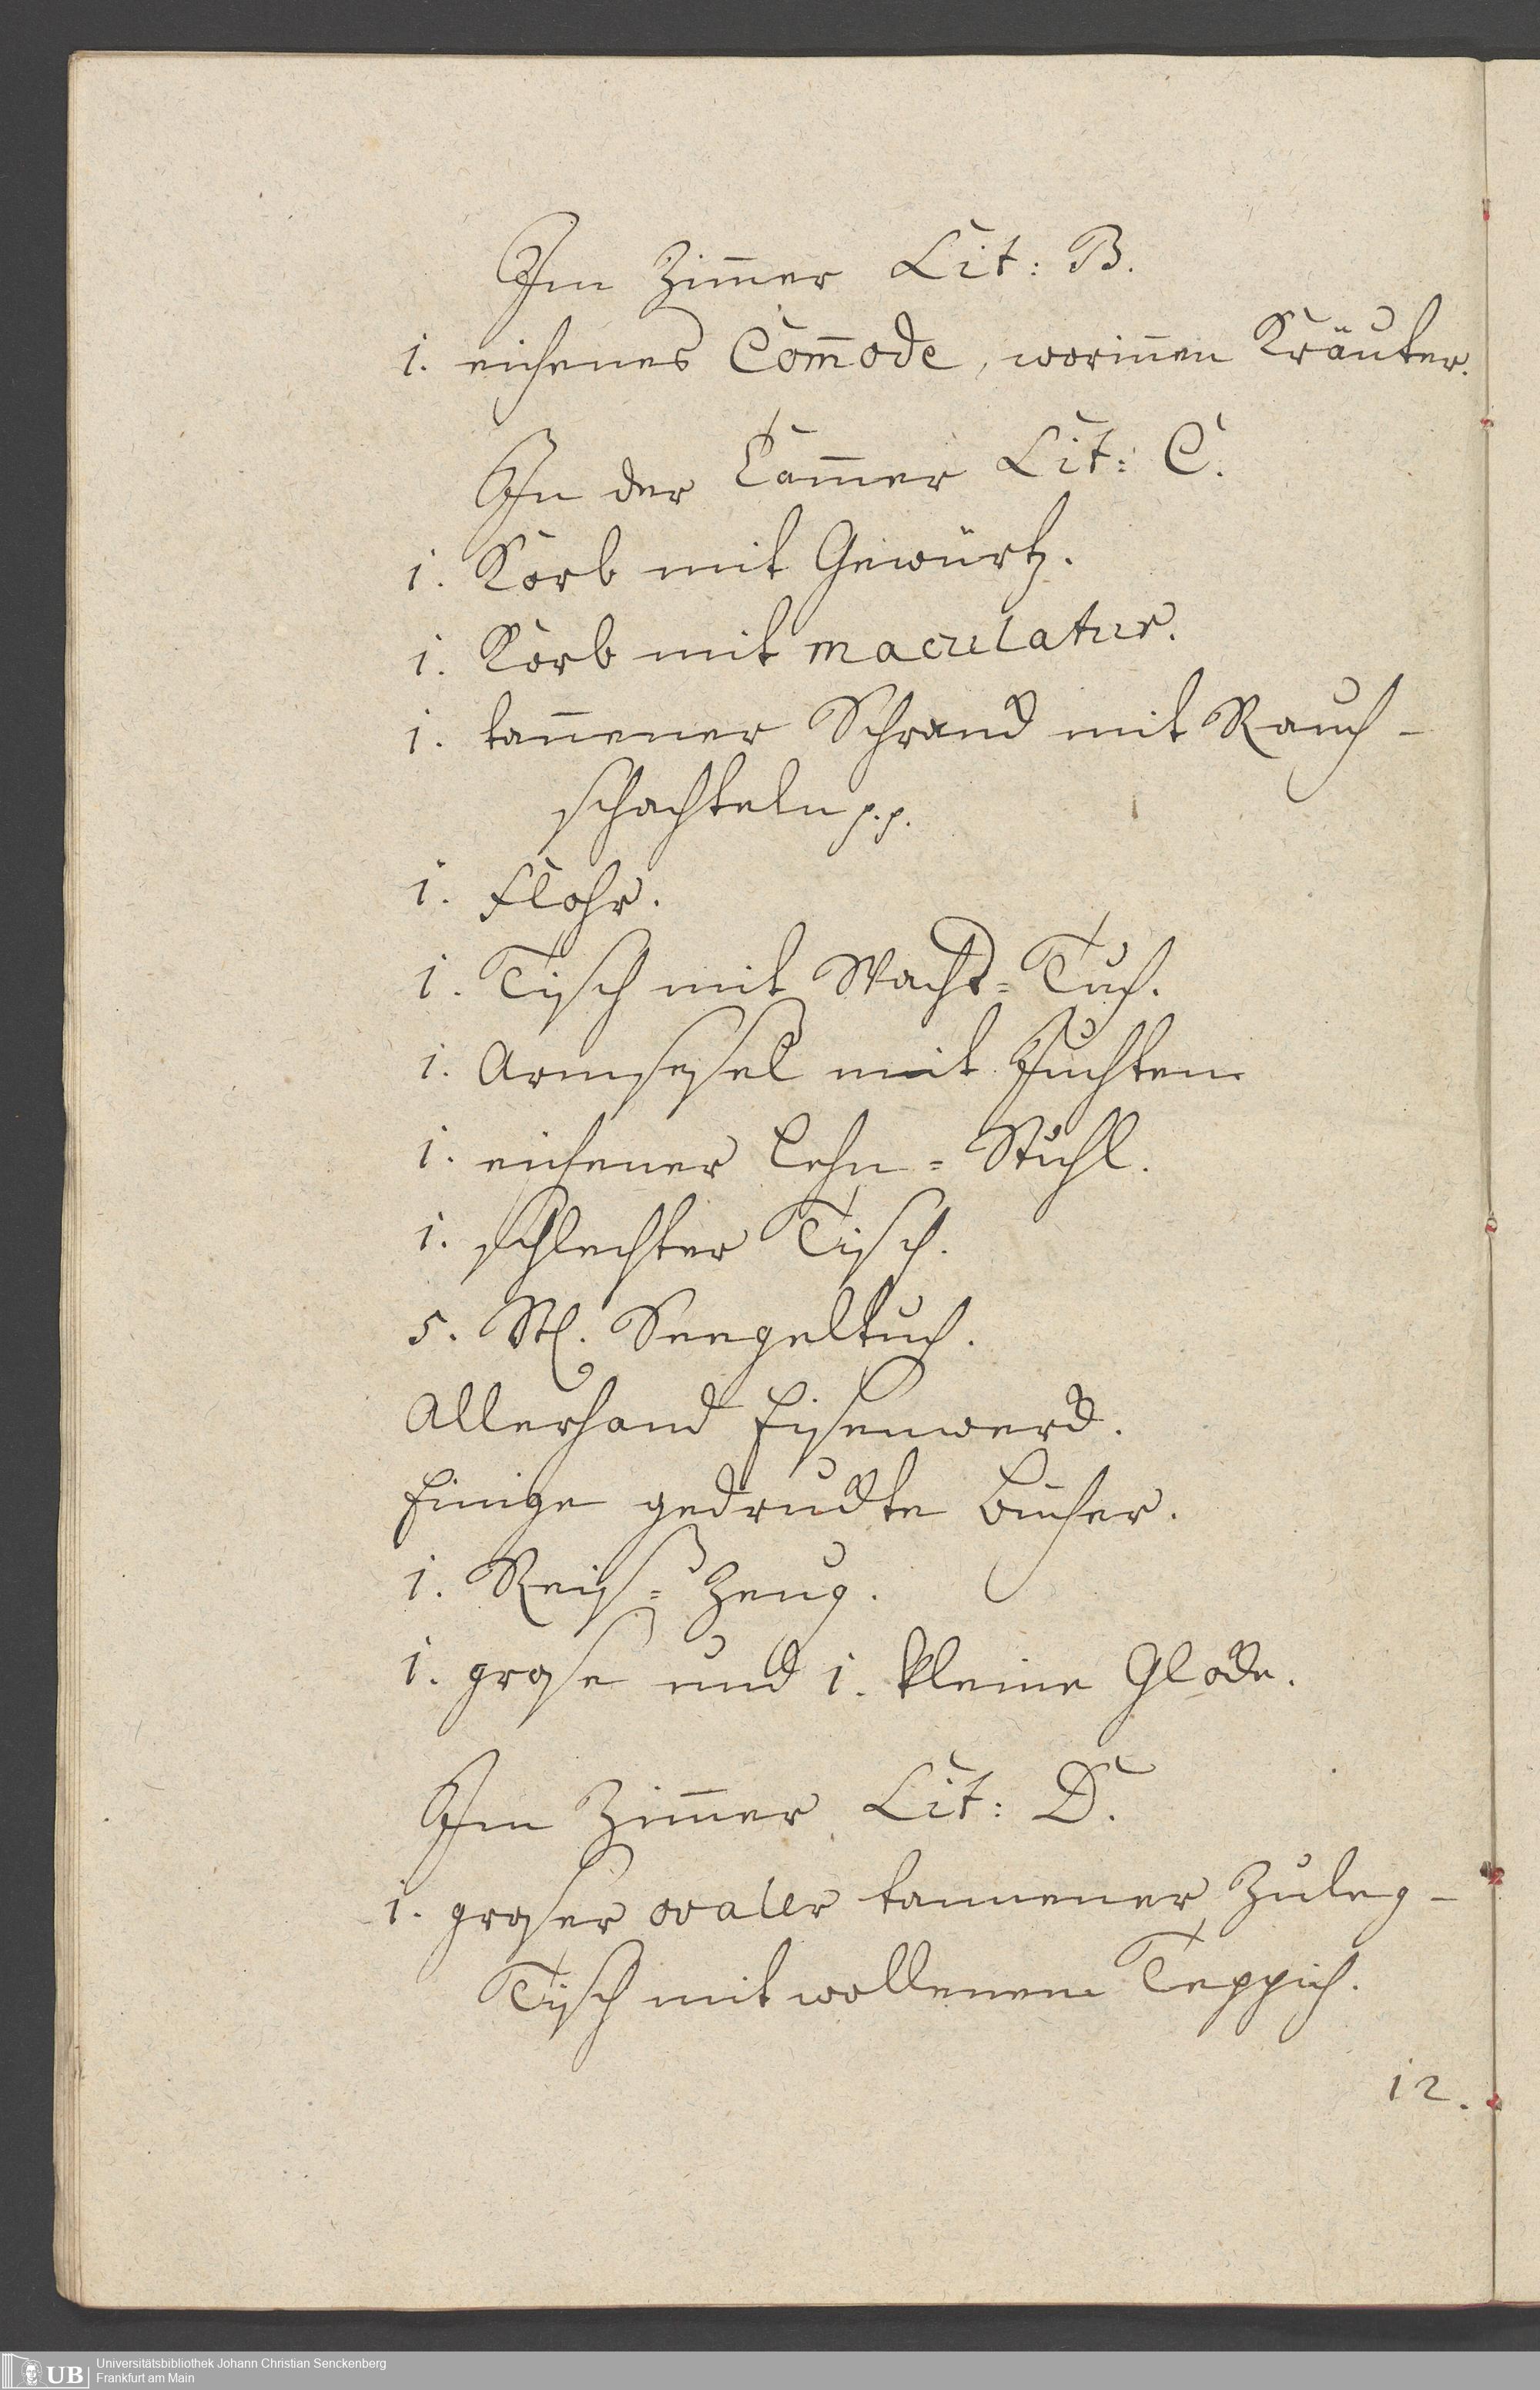 Im Zim̅er Lit: B.
1. eichenes Com̅ode, worin̅en Kräuter.
In der Cam̅er Lit: C.
1. Korb mit Gewürtz.
1. Korb mit maculatur.
1. tan̅ener Schranck mit Rauch-
schachteln p.p.
1. Flohr.
1. Tisch mit Wachs=Tuch.
1. Armsessel mit Juchten
1. eichener Lehn=Stuhl.
1. schlechter Tisch.
5. St. Seegeltuch.
Allerhand Eisenwerck.
Einige gedruckte Bücher.
1. Reiß=Zeug.
1. grose und 1. kleine Glocke.
Im Zim̅er Lit: D.
1. groser ovaler tannener Zuleg-
Tisch mit wollenem Teppich.
12.
UB Universitätsbibliothek Johann Christian Senckenberg
Frankfurt am Main